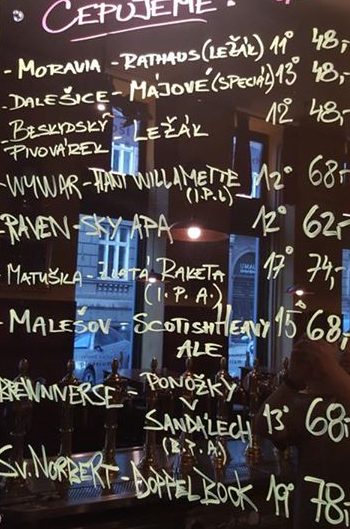 ČEPUJEME:
- MORAVIA - RATHAUS (LEŽÁK) 11° 48,-
- DALEŠICE - MÁJOVÉ (SPECIÁL) 13° 48,-
BESKYDSKÝ PIVOVÁREK - LEŽÁK 12° 48,-
- WYWAR - HANT WILLAMETTE 12° 68,-
(I.P.L)
- RAVEN - SKY APA 12° 62,-
- MATUŠKA - ZLATÁ RAKETA 17° 74,-
(I.P.A.)
- MALEŠOV - SCOTISH HEAVY 15° 68,-
ALE
BREWNVERSE - PONOŽKY
V
SANDÁLECH 13° 68,-
(B.P.A)
SV. NORBERT - DOPPELBOOK 19° 78,-